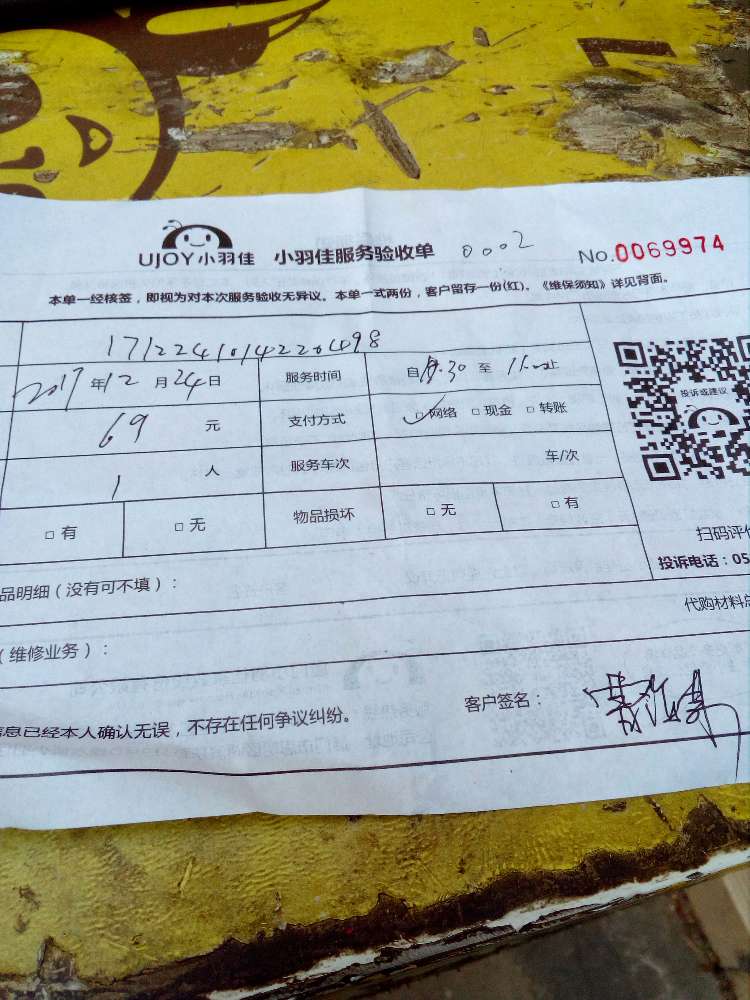 UJOY小羽佳 小羽佳服务验收单 0002 No.0069974
本单一经核签，即视为对本次服务验收无异议。本单一式两份，客户留存一份(红)。《维保须知》详见背面。
2017年12月24日 服务时间 自 :30 至 止
69 元 支付方式 ☑网络 □现金 □转账
投诉或建议
1 人 服务车次 车/次
□有 □无 物品损坏 □无 □有
扫码评
投诉电话：05
品明细（没有可不填）：
代购材料
（维修业务）：
客户签名：
信息已经本人确认无误，不存在任何争议纠纷。